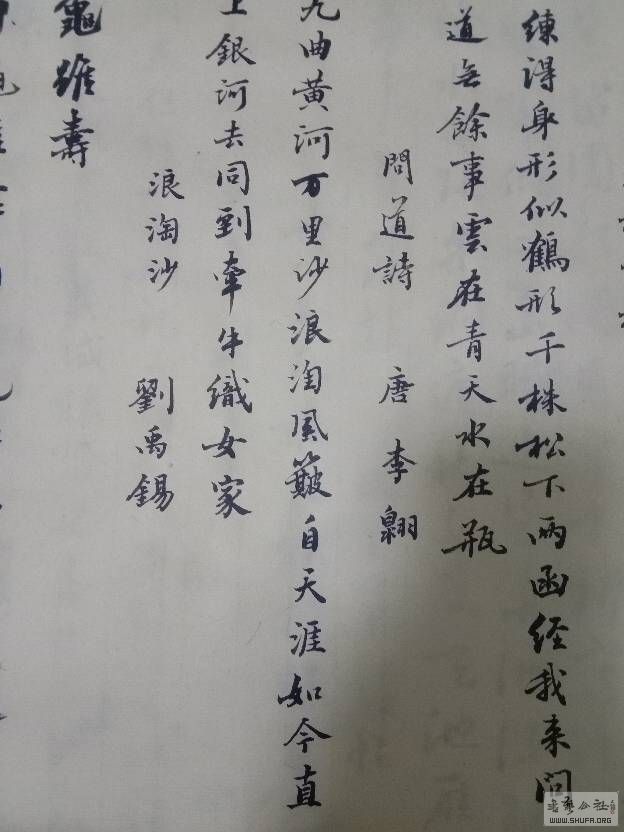 練得身形似鶴形千株松下兩函经我来問
道无餘事雲在青天水在瓶
問道詩 唐 李翱
九曲黄河万里沙浪淘風簸自天涯如今直
上銀河去同到牽牛織女家
浪淘沙 劉禹錫
龜雖壽
WWW.SHUFA.ORG